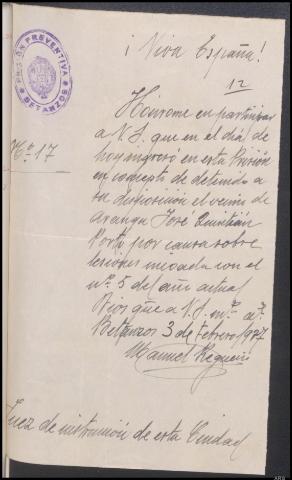 PRISIÓN PREVENTIVA
* BETANZOS *
¡Viva España!
12
Nº 17
Hónrome en participar
a V.S. que en el día de
hoy ingresó en esta Prisión
en concepto de detenido a
su disposición el vecino de
Aranga José Quintián
Porta por causa sobre
lesiones incoada con el
nº 5 del año actual
Dios gue a V.S. m.s a.s
Betanzos 3 de Febrero 1937
Manuel Regueiro
Juez de instrucción de esta Ciudad